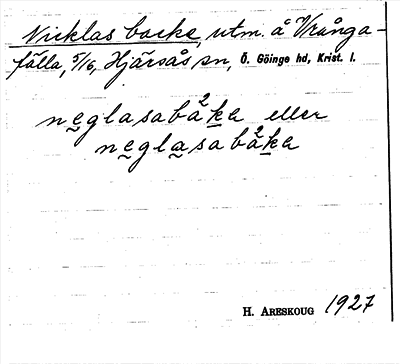 Nicklas backe, utm. å Vrånga-
fälla, 5/16, Hjärsås sn, Ö. Göinge hd, Krist. l.
neglasabåka eller
neglasabåka
H. ARESKOUG 1927